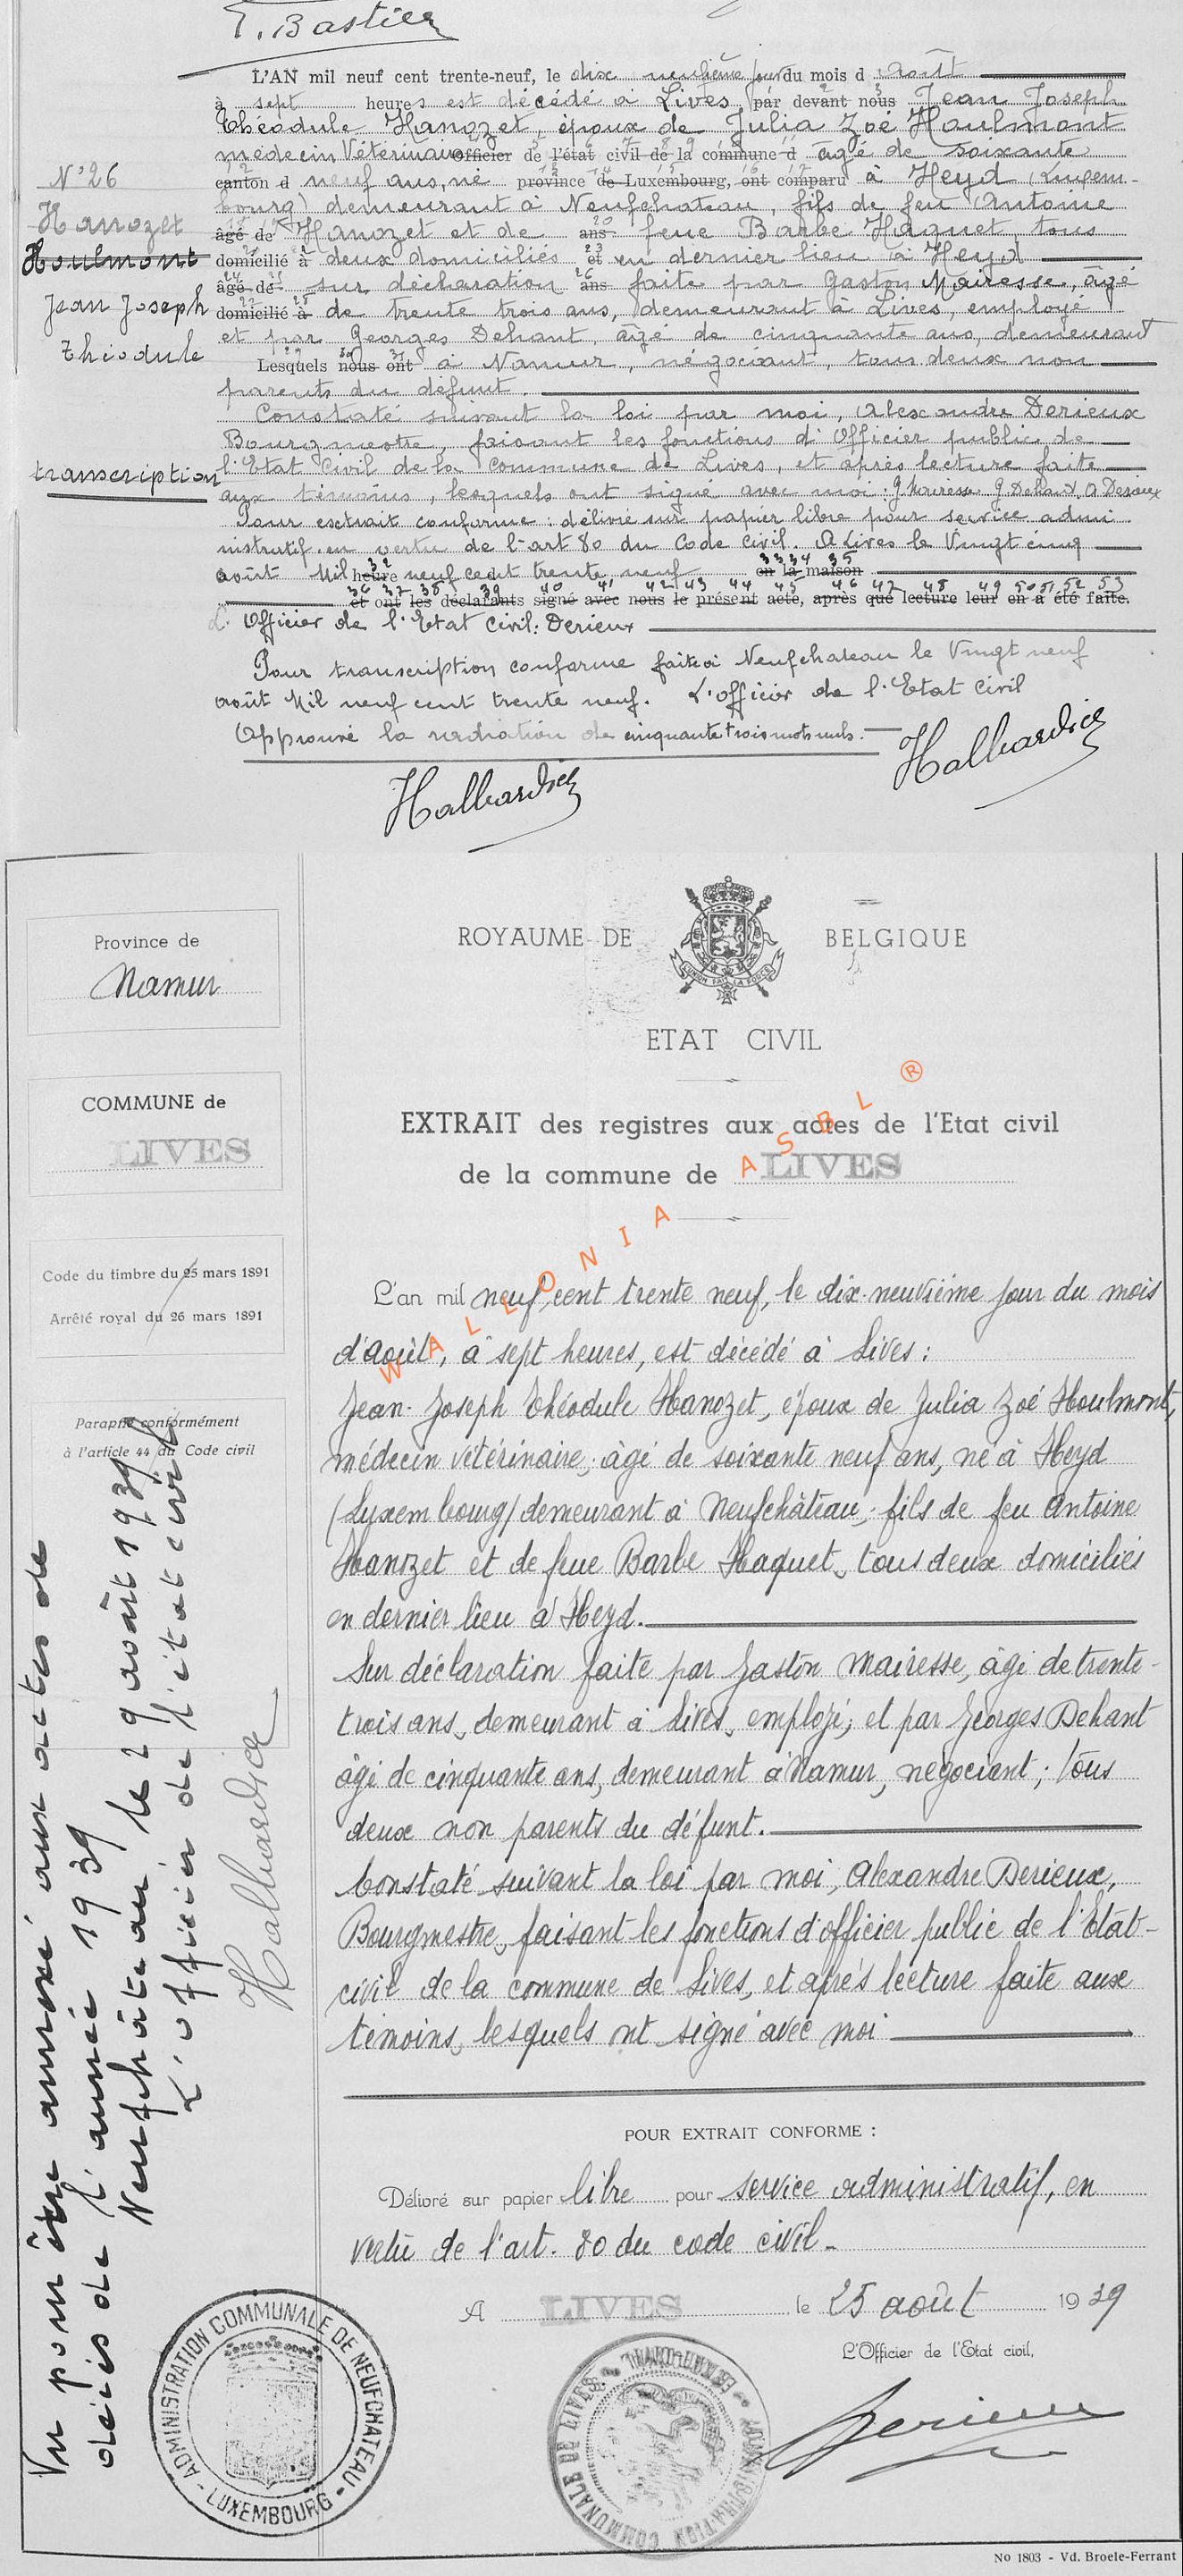 T. Bastien
L'AN mil neuf cent trente-neuf, le dix neuvième jour du mois d août
à sept heures est décédé à Lives, par devant nous Jean Joseph
Théodule Hanozet, époux de Julia Zoé Houlmont
médecin Vétérinaire officier de l'état civil de la commune d âgé de soixante
canton d neuf ans, né province de Luxembourg, ont comparu à Heyd (Luxem-
bourg) demeurant à Neufchateau, fils de feu Antoine
âgé de Hanozet et de ans feue Barbe Haquet, tous
domicilié à deux domiciliés et en dernier lieu à Heyd
âgé de sur déclaration ans faite par Gaston Mairesse, âgé
domicilié à de trente trois ans, demeurant à Lives, employé
et par Georges Dehant, âgé de cinquante ans, demeurant
Lesquels nous ont à Namur, négociant, tous deux non
parents du défunt.
Constaté suivant la loi par moi, Alexandre Derieux
Bourgmestre, faisant les fonctions d'Officier public de
l'Etat Civil de la commune de Lives, et après lecture faite
aux témoins, lesquels ont signé avec moi : G. Mairesse G. Dehant, A. Derieux
Pour extrait conforme : délivré sur papier libre pour service admi
nistratif. en vertu de l'art 80 du Code civil. A Lives le Vingt cinq
août Mil heure neuf cent trente neuf en la maison
et ont les déclarants signé avec nous le présent acte, après que lecture leur en a été faite.
L'Officier de l'Etat Civil: Derieux
Pour transcription conforme faite à Neufchateau le Vingt neuf
août Mil neuf cent trente neuf. L'officier de l'Etat Civil
Approuvé la radiation de cinquante trois mots nuls.
Halbardier
Halbardier
N° 26
Hanozet
Houlmont
Jean Joseph
Théodule
transcription
Province de
Namur
COMMUNE de
LIVES
Code du timbre du 25 mars 1891
Arrêté royal du 26 mars 1891
Paraphé conformément
à l'article 44 du Code civil
Vu pour être annexé aux actes de
décès de l'année 1939
Neufchâteau, le 29 août 1939
L'officier de l'état civil
Halbardier
ROYAUME DE BELGIQUE
L'UNION FAIT LA FORCE
ETAT CIVIL
EXTRAIT des registres aux actes de l'Etat civil
de la commune de LIVES
WALLONIA ASBL ®
L'an mil neuf cent trente neuf, le dix-neuvième jour du mois
d'août, à sept heures, est décédé à Lives :
Jean-Joseph Théodule Hanozet, époux de Julia Zoé Houlmont,
médecin vétérinaire, âgé de soixante neuf ans, né à Heyd
(Luxembourg) demeurant à Neufchâteau; fils de feu Antoine
Hanozet et de feue Barbe Haquet, tous deux domiciliés
en dernier lieu à Heyd.
Sur déclaration faite par Gaston Mairesse, âgé de trente-
trois ans, demeurant à Lives, employé; et par Georges Dehant
âgé de cinquante ans, demeurant à Namur, négociant; tous
deux non parents du défunt.
Constaté suivant la loi par moi, Alexandre Derieux,
Bourgmestre, faisant les fonctions d'officier public de l'Etat-
civil de la commune de Lives, et après lecture faite aux
témoins, lesquels nt signé avec moi
POUR EXTRAIT CONFORME :
Délivré sur papier libre pour service administratif, en
vertu de l'art. 80 du code civil.
A LIVES le 25 août 1939
L'Officier de l'Etat civil,
Derieux
ADMINISTRATION COMMUNALE DE NEUFCHATEAU - LUXEMBOURG -
ADMINISTRATION COMMUNALE DE LIVES
No 1803 - Vd. Broele-Ferrant